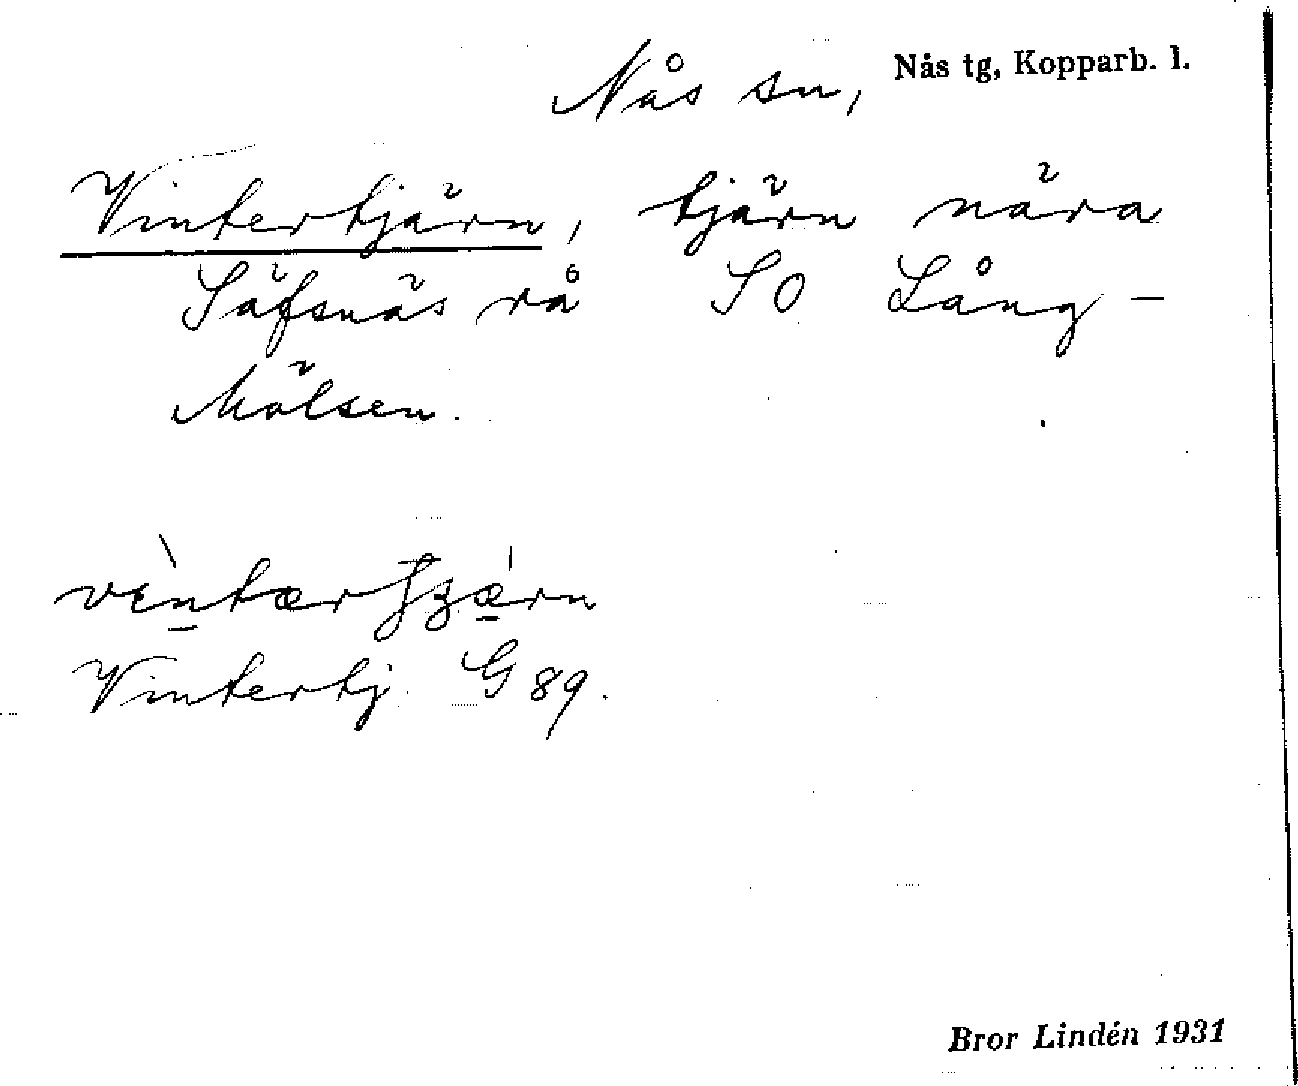 Nås sn, Nås tg, Kopparb. l.
Vintertjärn, tjärn nära
Säfsnäs rå SO Lång-
Mälsen.
Vintertj. G 89.
Bror Lindén 1931